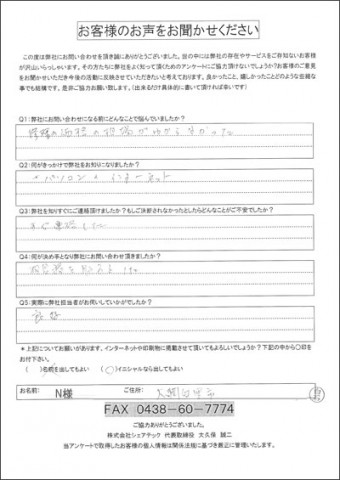 お客様のお声をお聞かせください
この度は弊社にお問い合わせを頂き誠にありがとうございました。世の中には弊社の存在やサービスをご存知ないお客様
が沢山いらっしゃいます。その方たちに弊社をよく知って頂くためのアンケートにご協力頂けないでしょうか?お客様のご意見
をお聞かせいただき今後の活動に反映させていただきたいと考えております。良かったこと、嬉しかったことどのような些細な
事でも結構です。是非ご協力お願い致します。(出来るだけ具体的に書いて頂ければ幸いです)
Q1:弊社にお問い合わせになる前にどんなことで悩んでいましたか?
Q2:何がきっかけで弊社をお知りになりましたか?
パソコン インターネット
Q3:弊社を知りすぐにご連絡頂けましたか?もしご決断されなかったとしたらどんなことがご不安でしたか?
Q4:何が決め手となり弊社にお問い合わせ頂きましたか?
Q5:実際に弊社担当者がお伺いしていかがでしたか?
*上記についてお願いがあります。インターネットや印刷物に掲載させて頂いてもよろしいでしょうか?下記の中から〇印を
お付下さい。
( )名前を出してもよい (〇)イニシャルなら出してもよい
お名前: N様 ご住所:
FAX 0438-60-7774
ご協力ありがとうございました。
株式会社シェアテック 代表取締役 大久保 誠二
当アンケートで取得したお客様の個人情報は関係法規に基づき厳正に管理いたします。